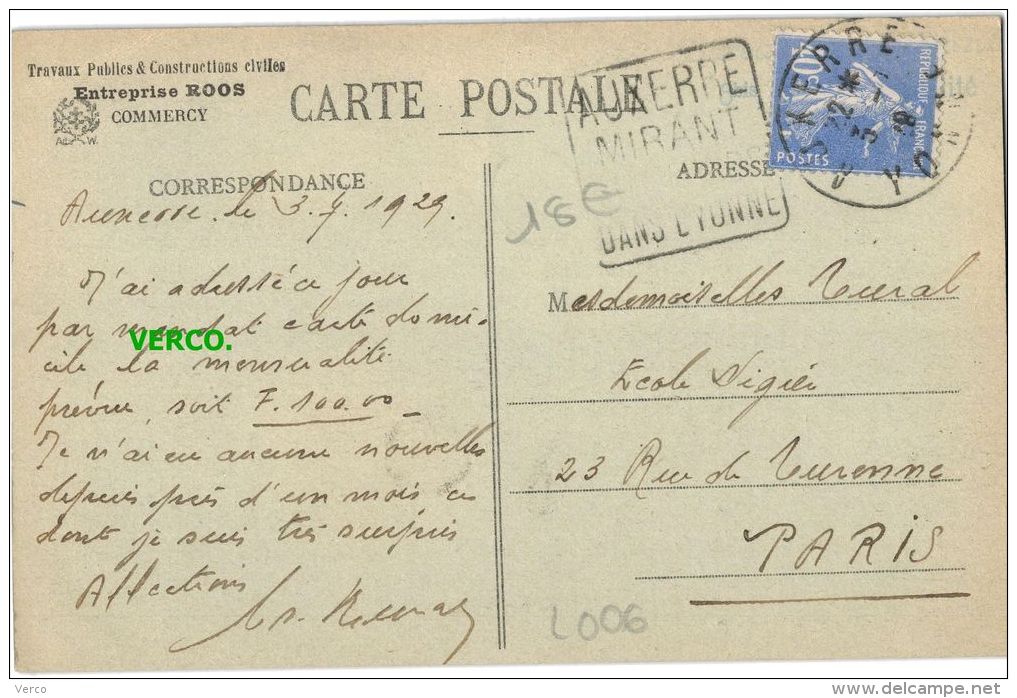 Travaux Publics & Constructions civiles
Entreprise ROOS
COMMERCY
CARTE POSTALE
AUXERRE
MIRANT
DANS L'YONNE
AUXERRE
YONNE
40c
REPUBLIQUE FRANÇAISE
POSTES
CORRESPONDANCE
ADRESSE
18€
Auxerre le 3.7.1929.
J'ai adressé ce jour
par mandat carte domi-
cile la mensualité
prévue, soit F. 100.00
Je n'ai eu aucune nouvelles
depuis près d'un mois ce
dont je suis très surpris
Affections
VERCO.
Mesdemoiselles
Ecole Pigier
23 Rue de Turenne
PARIS
L006
Verco
http://www.delcampe.net